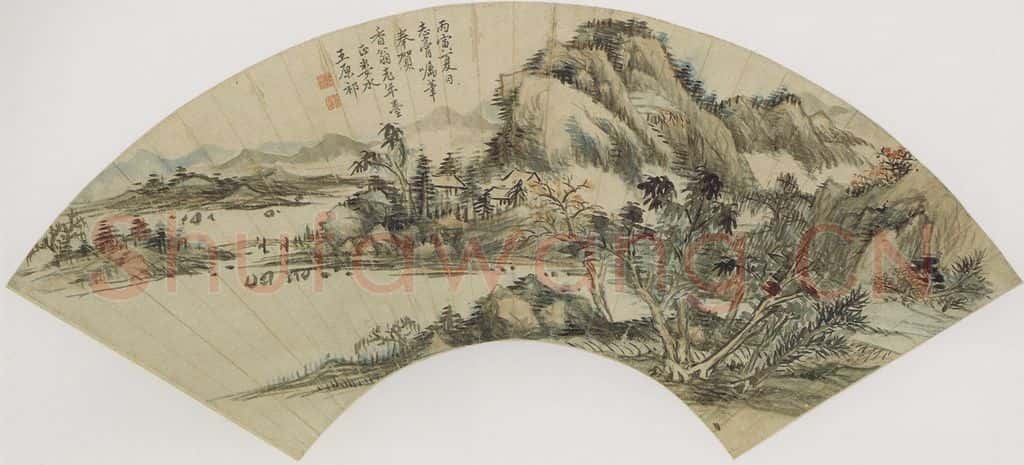 丙寅夏日
囑筆
奉賀
香翁老年臺
正婁水
王原祁
Shufawang.CN